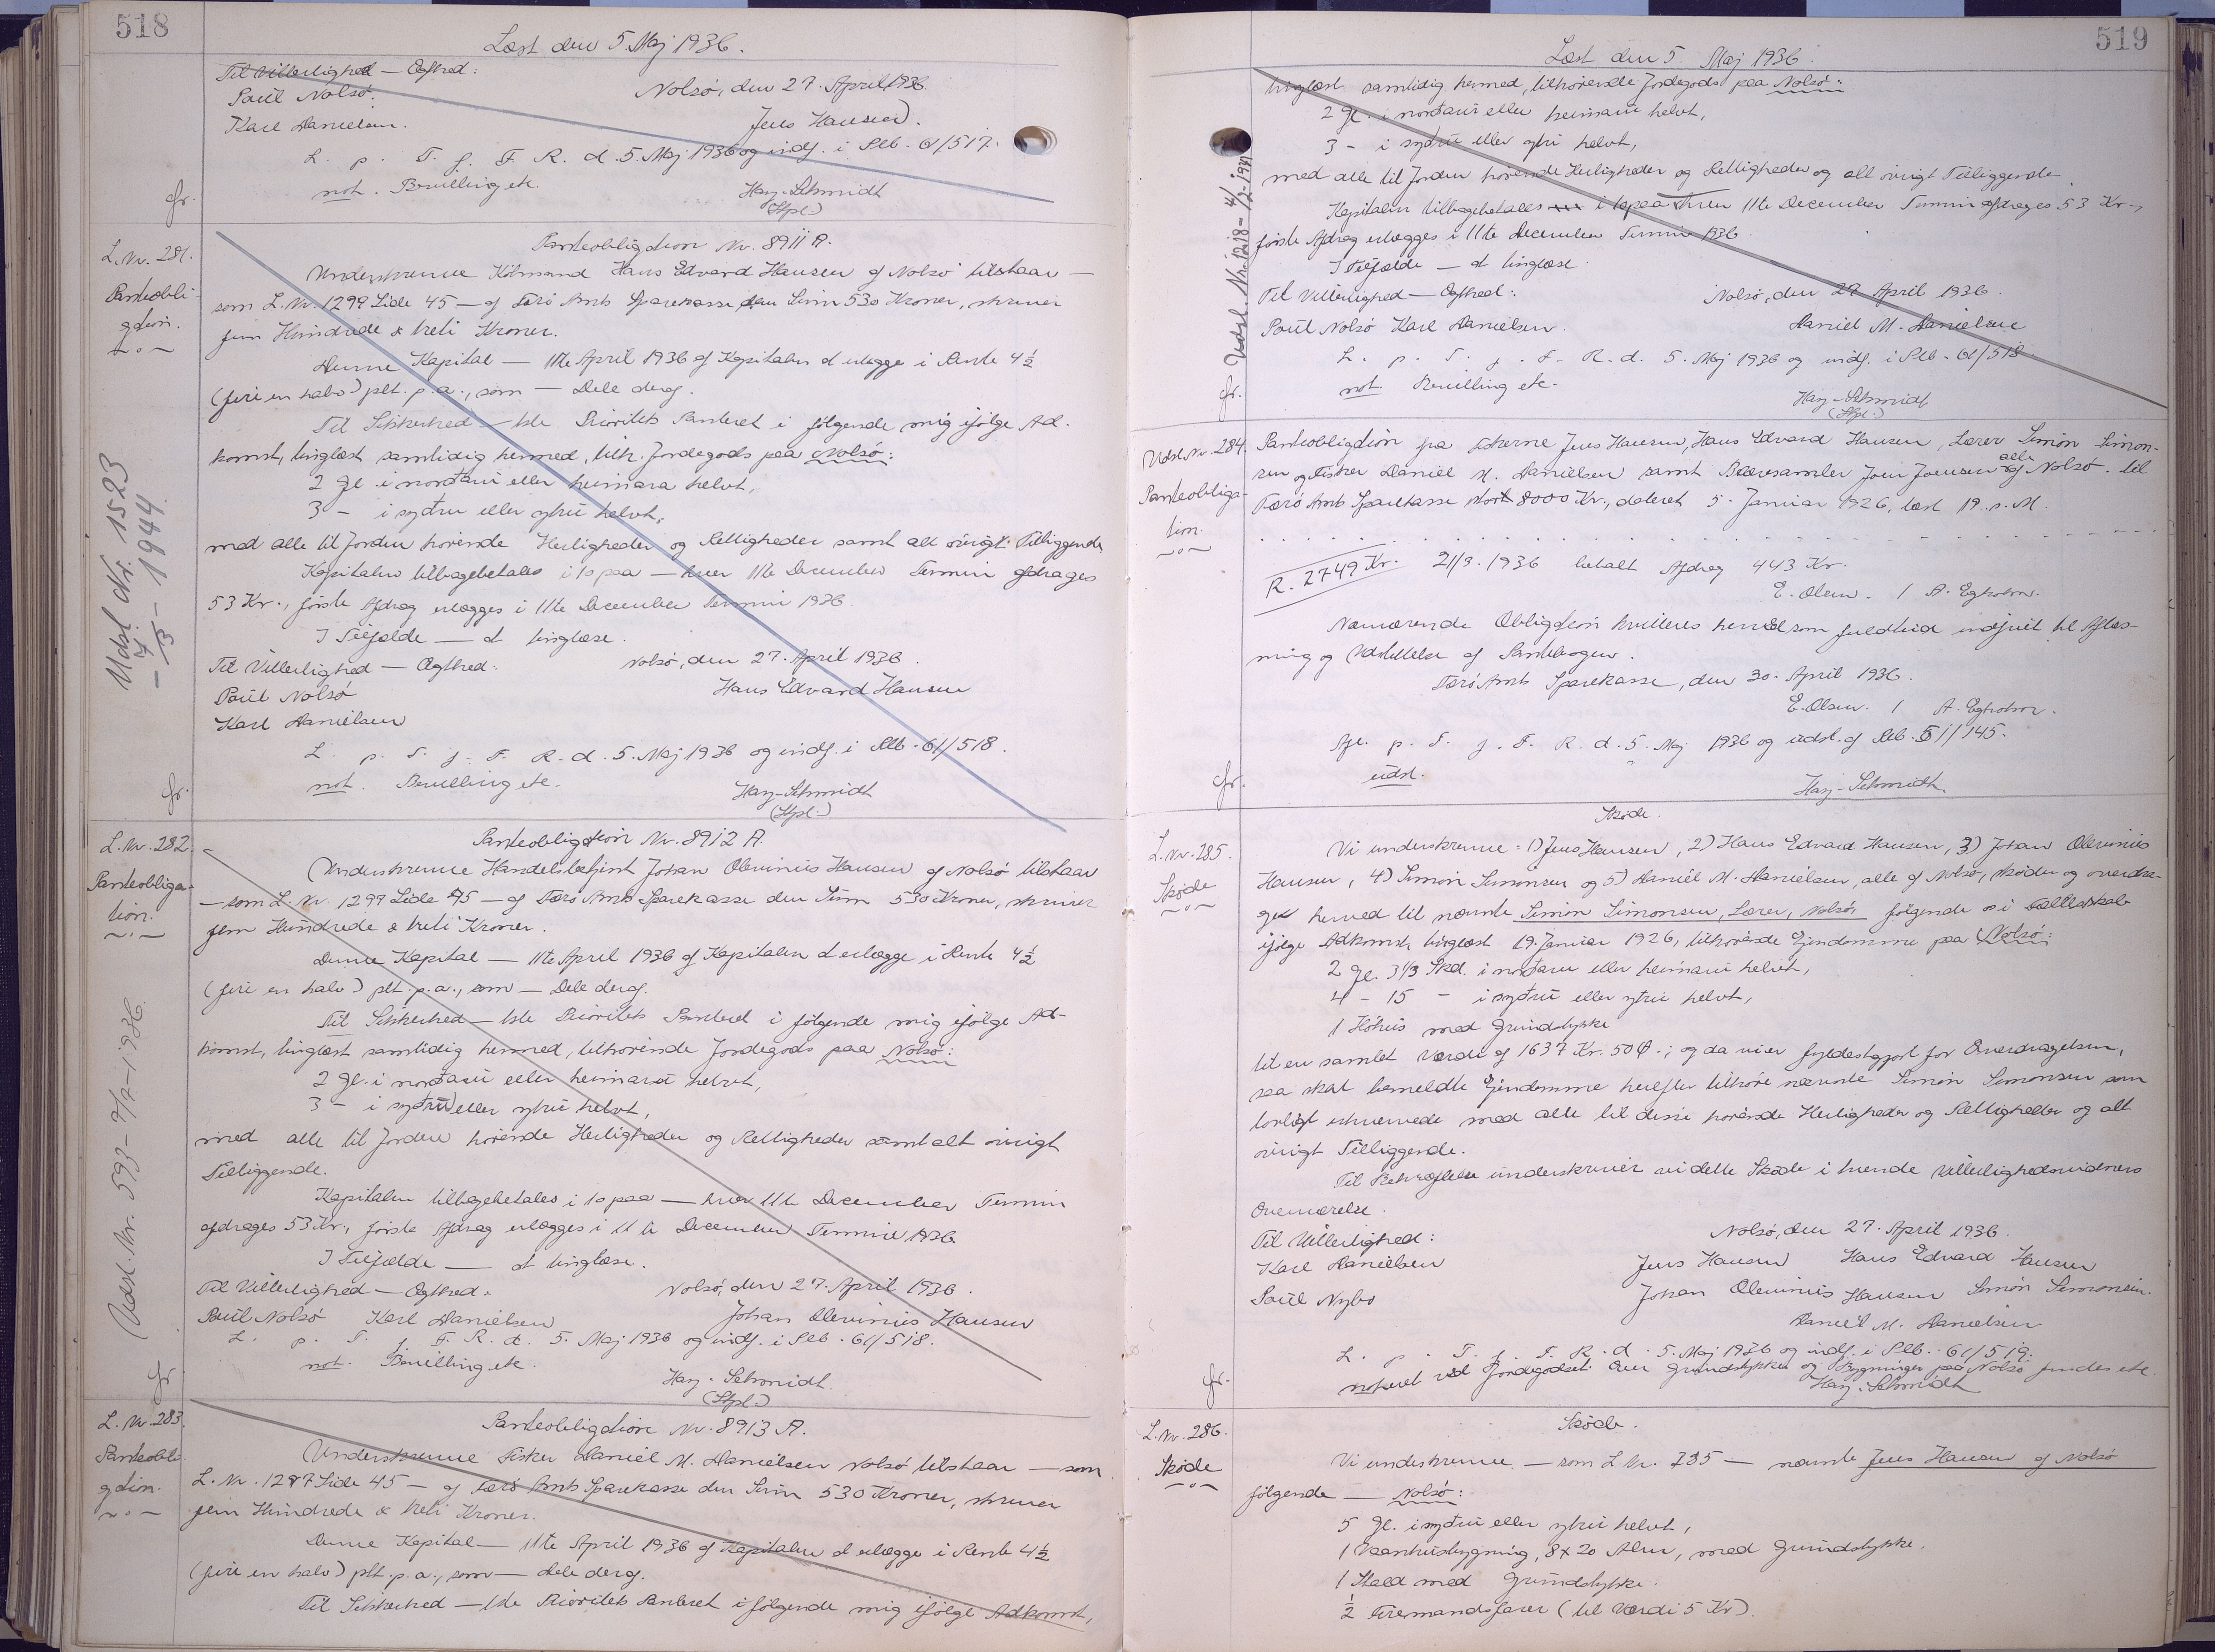 518
Læst den 5. Maj 1936.
Til Vitterlighed — Ægthed:
Poül Nolsö.
Nolsö, den 27. April 1936.
Karl Danielsen.
Jens Hansen).
L. p. T. f. F. R. d. 5. Maj 1936 og indf. i Plb. 61/517.
not. Bevilling etc.
Hay-Schmidt
(Stpl.)
fr.
L. Nr. 281.
Panteobli-
gation.
Panteobligation Nr. 8911 A.
Underskrevne Köbmand Hans Edvard Hansen af Nolsö tilstaar —
som L. Nr. 1299 Side 45 — af Færö Amts Sparekasse den Süm 530 Kroner, skriver
fem Hündrede & treti Kroner.
Denne Kapital — 11te April 1936 af Kapitalen at erlægge i Rente 4½
(fire en halv) pCt. p. a., som — Dele deraf.
Til Sikkerhed — 1ste Prioritets Panteret i følgende mig ifølge Ad-
komst, tinglæst samtidig hermed, tilh. Jordegods paa Nolsö:
2 Gl. i nordaru eller heimara helvt,
3 - i syðru eller ytru helvt,
med alle til Jorden hörende Herligheder og Rettigheder samt alt övrigt Tilliggende
Kapitalen tilbagebetales i to paa — hver 11te December Termin afdrages
53 Kr., förste Afdrag erlægges i 11te December Termin 1936.
I Tilfælde — at tinglæse.
Til Vitterlighed — Ægthed:
Nolsö, den 27. April 1936.
Poül Nolsö
Hans Edvard Hansen
Karl Danielsen
L. p. T. f. F. R. d. 5. Maj 1936 og indf. i Plb. 61/518.
not. Bevilling etc.
Hay-Schmidt
(Stpl.)
Udsl. Nr. 1523
— 4/3 — 1944.
fr.
L. Nr. 282.
Panteobliga-
tion.
Panteobligation Nr. 8912 A.
Underskrevne Handelsbetjent Johan Olevinius Hansen af Nolsö tilstaar
— som L. Nr. 1299 Side 45 — af Færö Amts Sparekasse den Süm 530 Kroner, skriver
fem Hündrede & treti Kroner.
Denne Kapital — 11te April 1936 af Kapitalen at erlægge i Rente 4½
(fire en halv) pCt. p. a., som — Dele deraf.
Til Sikkerhed — 1ste Prioritets Panteret i følgende mig ifølge Ad-
komst, tinglæst samtidig hermed, tilhørende Jordegods paa Nolsö:
2 Gl. i nordaru eller heimara helvt,
3 - i syðru eller ytru helvt,
med alle til Jorden hörende Herligheder og Rettigheder samt alt övrigt
Tilliggende.
Kapitalen tilbagebetales i to paa — hver 11te December Termin
afdrages 53 Kr., förste Afdrag erlægges i 11te December Termin 1936.
I Tilfælde — at tinglæse.
Til Vitterlighed — Ægthed.
Nolsö, den 27. April 1936.
Poül Nolsö Karl Danielsen
Johan Olevinius Hansen
L. p. T. f. F. R. d. 5. Maj 1936 og indf. i Plb. 61/518.
not. Bevilling etc.
Hay-Schmidt.
(Stpl.)
Udsl. Nr. 593 - 9/7 - 1936.
fr.
L. Nr. 283.
Panteobli-
gation.
Panteobligation Nr. 8913 A.
Underskrevne Fisker Daniel M. Danielsen Nolsö tilstaar — som
L. Nr. 1297 Side 45 — af Færö Amts Sparekasse den Süm 530 Kroner, skriver
fem Hündrede & treti Kroner.
Denne Kapital — 11te April 1936 af Kapitalen at erlægge i Rente 4½
(fire en halv) pCt. p. a., som — Dele deraf.
Til Sikkerhed — 1ste Prioritets Panteret i følgende mig ifølge Adkomst,
519
Læst den 5. Maj 1936.
tinglæst samtidig hermed, tilhörende Jordegods paa Nolsö:
2 Gl. i nordaru eller heimaru helvt,
3 - i syðru eller ytri helvt,
med alle til Jorden hörende Herligheder og Rettigheder og alt övrigt Tilliggende.
Kapitalen tilbagebetales i to paa hver 11te December Termin afdrages 53 Kr.,
förste Afdrag erlægges i 11te December Termin 1936.
I Tilfælde — at tinglæse.
Til Vitterlighed — Ægthed:
Nolsö, den 27. April 1936.
Poül Nolsö Karl Danielsen.
Daniel M. Danielsen
L. p. T. f. F. R. d. 5. Maj 1936 og indf. i Plb. 61/518.
not. Bevilling etc.
Hay-Schmidt
(Stpl.)
fr.
Udsl. Nr. 284.
Panteobliga-
tion.
Panteobligation fra Fiskerne Jens Hansen, Hans Edvard Hansen, Lærer Simon Simon-
sen og Fisker Daniel M. Danielsen samt Joen Joensen alle af Nolsö. til
Færö Amts Sparekasse stort 8000 Kr., dateret 5. Januar 1926, læst 19. s. M.
R. 2749 Kr. 21/3. 1936 betalt Afdrag 443 Kr.
E. Olsen. / A. Egholm.
Nærværende Obligation kvitteres herved som fuldtud indfriet til Aflæs-
ning og Udslettelse af Pantebogen.
Færö Amts Sparekasse, den 30. April 1936.
E. Olsen. / A. Egholm.
Afl. p. T. f. F. R. d. 5. Maj 1936 og udsl. af Plb. 51/145.
udsl.
Hay-Schmidt.
fr.
L. Nr. 285.
Sköde
Sköde.
Vi underskrevne: 1) Jens Hansen, 2) Hans Edvard Hansen, 3) Johan Olevinius
Hansen, 4) Simon Simonsen og 5) Daniel M. Danielsen, alle af Nolsö, sköder og overdra-
ger herved til nævnte Simon Simonsen, Lærer, Nolsö følgende os i Fællesskab
ifølge Adkomst, tinglæst 19. Januar 1926, tilhörende Ejendomme paa Nolsö:
2 Gl. 3 1/3 Skd. i nordaru eller heimaru helvt,
4 - 15 - i syðru eller ytru helvt,
1 Höhüs med Grundstykke
til en samlet Værdi af 1637 Kr. 50 Ø.; og da vi er fyldestgjort for Overdragelsen,
saa skal bemeldte Ejendomme herefter tilhöre nævnte Simon Simonsen som
lovligt erhvervede med alle til disse hörende Herligheder og Rettigheder og alt
övrigt Tilliggende.
Til Bekræftelse underskriver vi dette Sköde i tvende Vitterlighedsvidners
Overværelse.
Nolsö, den 27. April 1936.
Til Vitterlighed:
Karl Danielsen
Jens Hansen Hans Edvard Hansen
Poül Nybo
Johan Olevinius Hansen Simon Simonsen.
Daniel M. Danielsen
L. p. T. f. F. R. d. 5. Maj 1936 og indf. i Plb. 61/519.
noteret ved Jordegodset. Over Grundstykker og Bygninger paa Nolsö findes etc.
Hay-Schmidt
fr.
L. Nr. 286.
Sköde
Sköde.
Vi underskrevne — som L. Nr. 285 — nævnte Jens Hansen af Nolsö
følgende — Nolsö:
5 Gl. i syðru eller ytru helvt,
1 Vaanhüsbygning, 8 x 20 Alen, med Grundstykke.
1 Stald med Grundstykke.
½ Firemandsfarer (til Værdi 5 Kr)